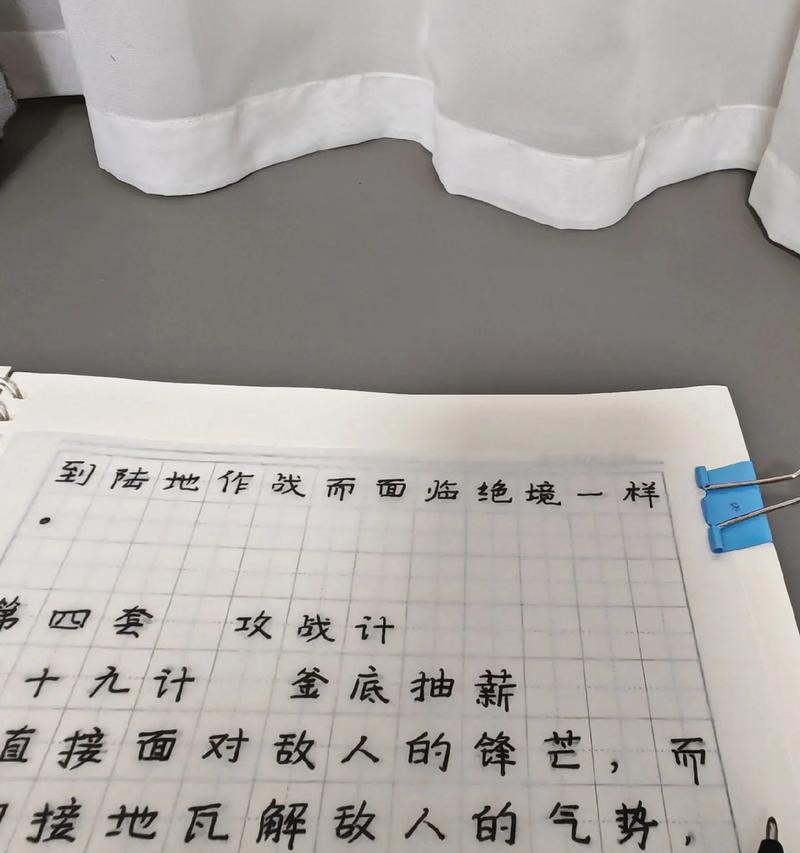 到陆地作战而面临绝境一样
。
第四套 攻战计
十九计 釜底抽薪
直接面对敌人的锋芒，而
接地瓦解敌人的气势，